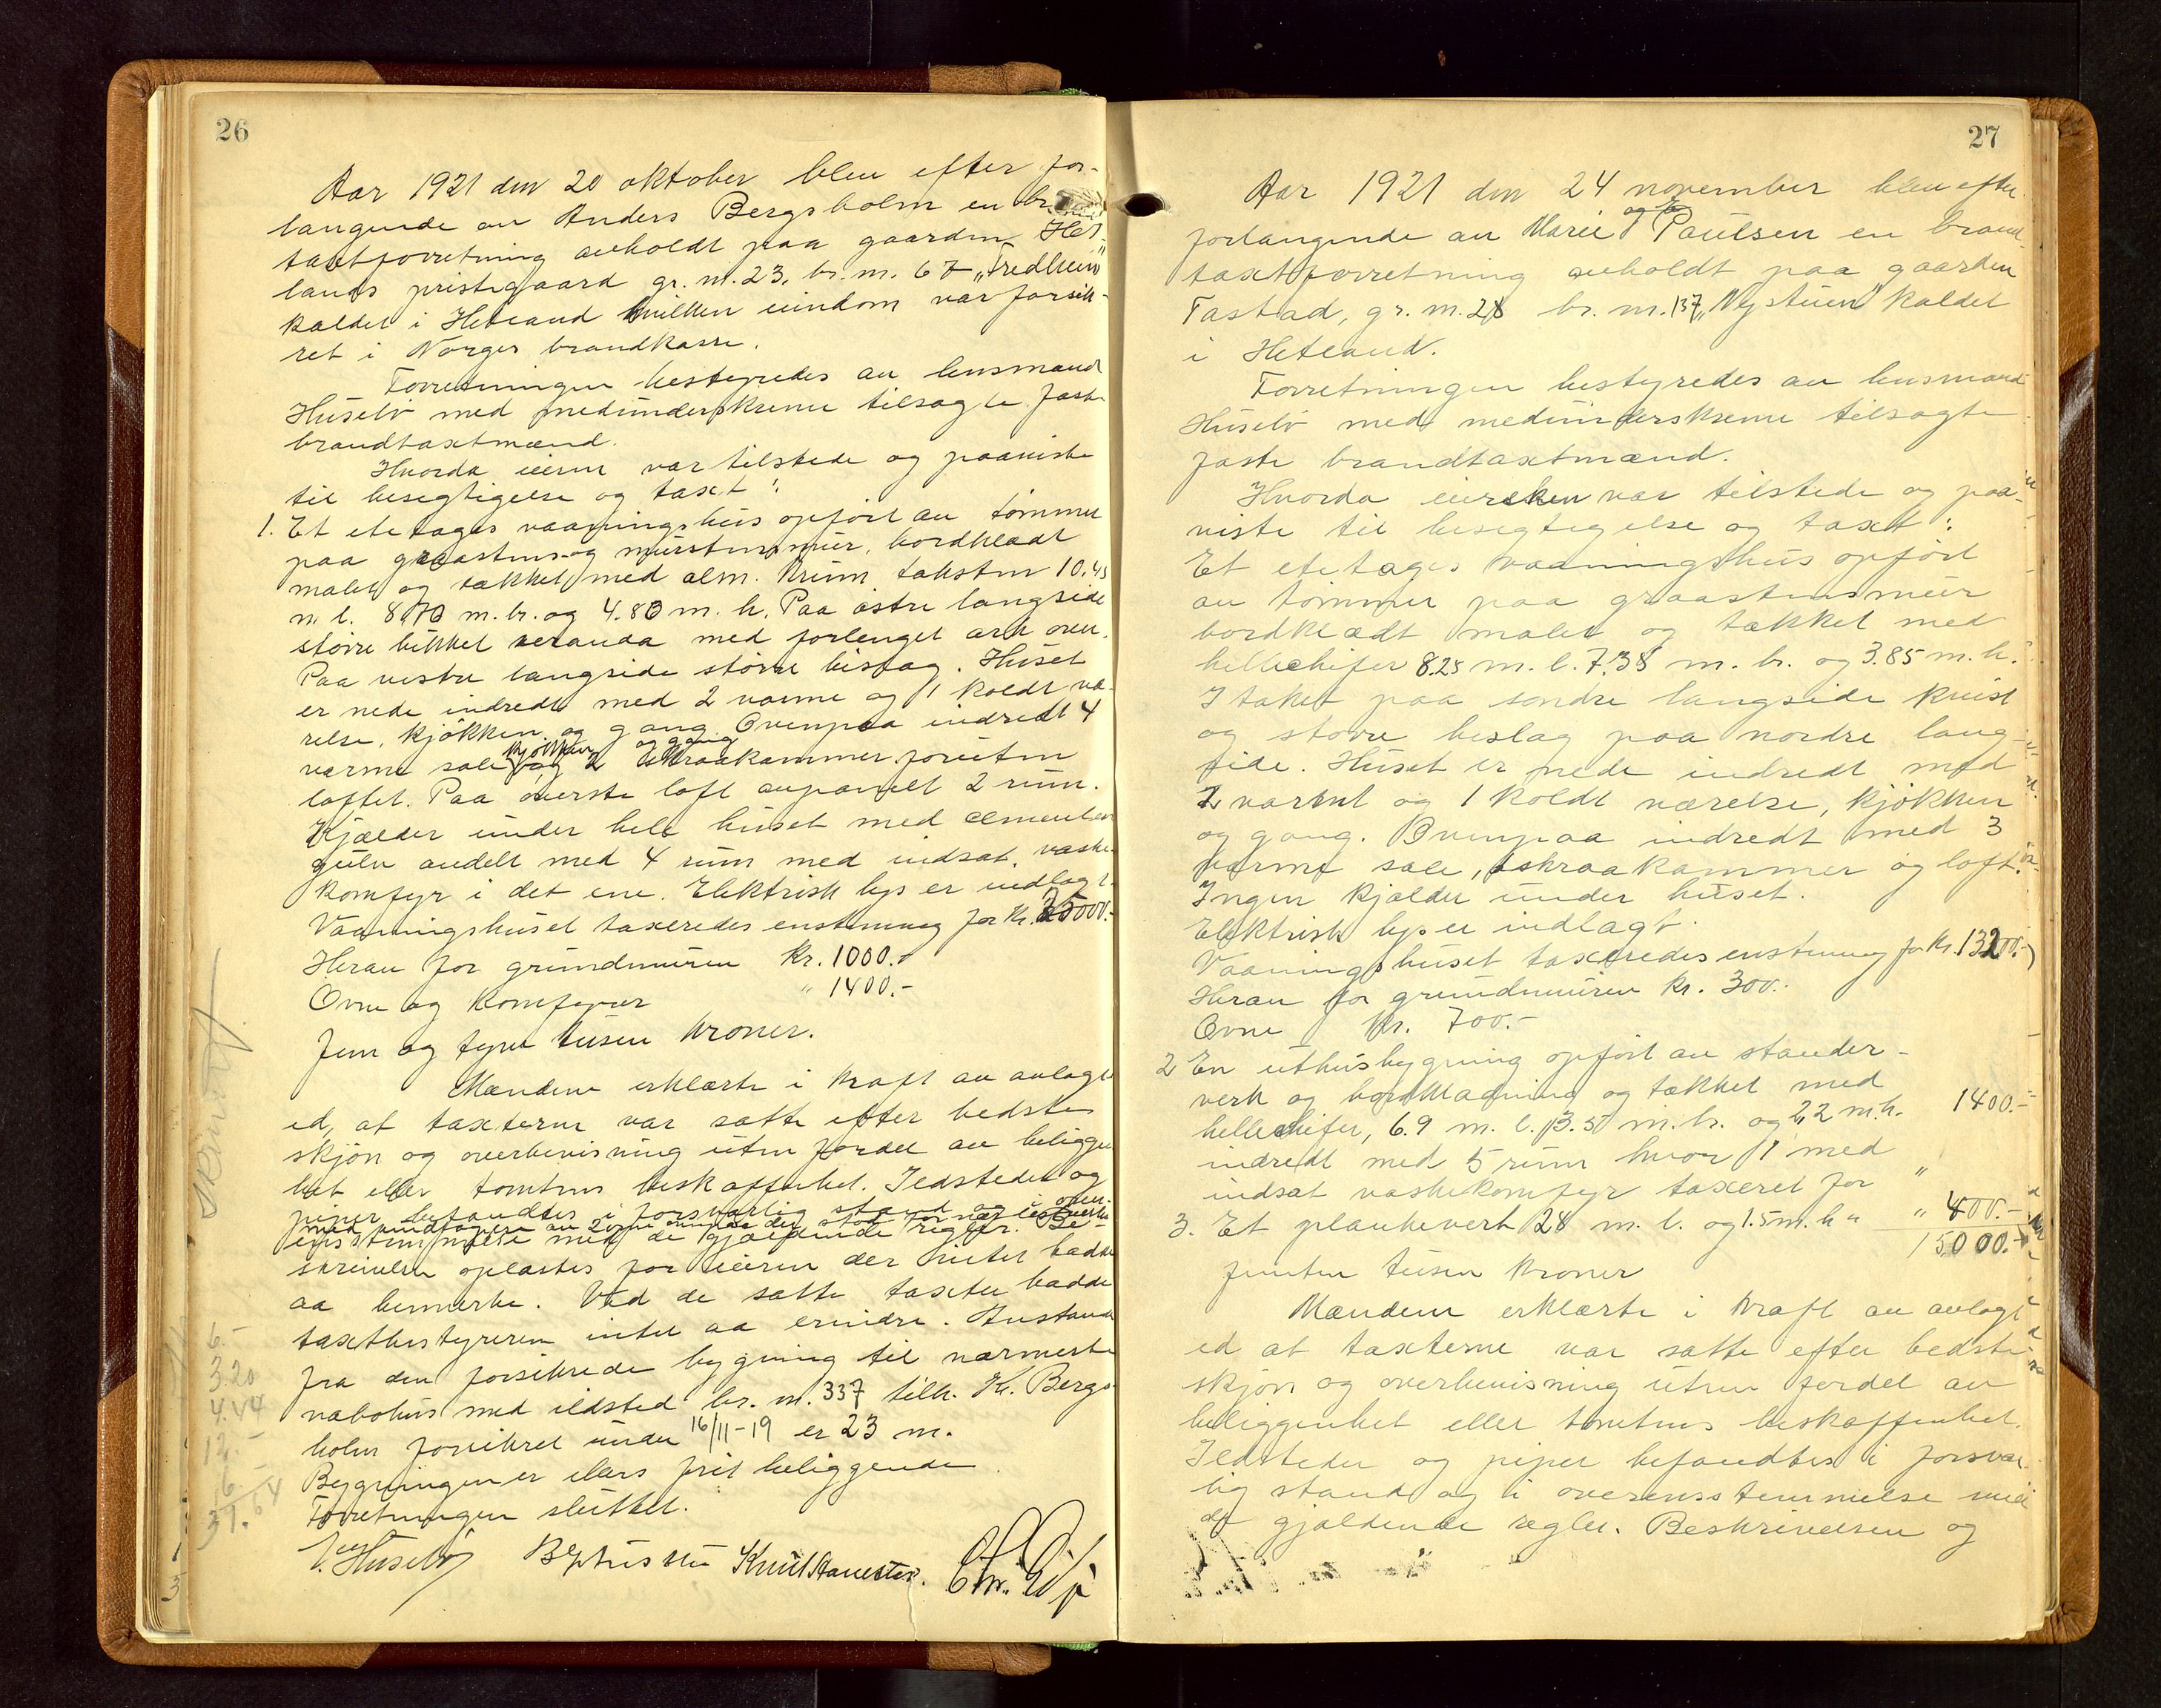 26
Aar 1921 den 20 oktober blev efter for-
langende av Anders Bergsholm en brand
taxtforretning avholdt paa gaarden Het-
lands prestegaard gr. nr. 23, br. nr. 67 "Fredheim"
kaldet i Hetland hvilken eiendom var forsik-
ret i Norges brandkasse.
Forretningen bestyredes av lensmand
Husebø med medunderskrevne tilsagte faste
brandtaxtmænd.
Hvorda eieren var tilstede og paaviste
til besigtigelse og taxt:
1. Et etetages vaaningshus opført av tømmer
paa graastens og murstensmur, bordklædt
malet og tækket med alm. krum taksten 10.45
m. l. 8.70 m. br. og 4.80 m. h. Paa østre langside
større lukket veranda med forlenget ark over.
Paa vestre langside større bislag. Huset
er nede indredt med 2 varme og 1 koldt væ-
relse, kjøkken og gang. Ovenpaa indredt 4
varme sale kjøkken og gang og 2 skraakammer foruten
loftet. Paa øverste loft avpanelt 2 rum.
Kjælder under hele huset med cementen
gulv avdelt med 4 rum med indsat vaske-
komfyr i det ene. Elektrisk lys er indlagt.
Vaaningshuset taxeredes enstemmig for Kr. 25000.-
Herav for grundmuren Kr. 1000.-
Ovne og komfyrer " 1400.-
Fem og tyve tusen kroner.
Mændene erklærte i kraft av avlagt
ed, at taxterne var satte efter bedste
skjøn og overbevisning uten fordel av beliggen
het eller tomtens beskaffenhet. Ildsteder og
piper befandtes i forsvarlig stand og i overens-
med undtagelse av 2 ovne ovenpaa der stod for nær træverke
ensstemmelse med de gjældende regler. Be-
skrivelsen oplæstes for eieren der intet hadde
aa bemerke. Ved de satte taxter hadde
taxtbestyreren intet aa erindre. Avstand
fra den forsikrede bygning til nærmeste
nabohus med ildsted br. nr. 337 tilh. Kr. Bergs-
holm forsikret under 16/11-19 er 23 m.
Bygningen er ellers frit beliggende.
Forretningen sluttet.
Husebø Knut Hauestø.
6.-
3.20
4.44
12.-
6.-
31.64
27
Aar 1921 den 24 november blev efter
forlangende av Marie og Paulsen en brand
taxtforretning avholdt paa gaarden
Tastad, gr. nr. 28 br. nr. 137 "Nystuen" kaldet
i Hetland.
Forretningen bestyredes av lensmand
Husebø med medunderskrevne tilsagte
faste brandtaxtmænd.
Hvorda eiersken var tilstede og paa-
viste til besigtigelse og taxt:
Et etetages vaaningshus opført
av tømmer paa graastensmur
bordklædt malet og tækket med
helleskifer 8.25 m. l. 7.35 m. br. og 3.85 m. h.
I taket paa søndre langside kvist
og større beslag paa nordre lang-
side. Huset er nede indredt med
2 varmt og 1 koldt værelse, kjøkken
og gang. Ovenpaa indredt med 3
varme sale, skraakammer og loft.
Ingen kjælder under huset.
Elektrisk lys er indlagt.
Vaaningshuset taxeredes enstemmig for Kr. 13200.-
Herav for grundmuren Kr. 300.-
Ovne Kr. 700.-
2 En uthusbygning opført av stander-
verk og bordklædning og tækket med
helleskifer, 6.9 m. l. 3.5 m. br. og 2.2 m. h.
indredt med 5 rum hvor 1 med
indsat vaskekomfyr taxeret for " 1400.-
3. Et plankeverk 28 m. l. og 1.5 m. h " " 400.-
15000.-
Femten tusen kroner
Mændene erklærte i kraft av avlagt
ed at taxterne var satte efter bedste
skjøn og overbevisning uten fordel av
beliggenhet eller tomtens beskaffenhet.
Ildsteder og piper befandtes i forsvar-
lig stand og i overensstemmelse med
de gjældende regler. Beskrivelsen og